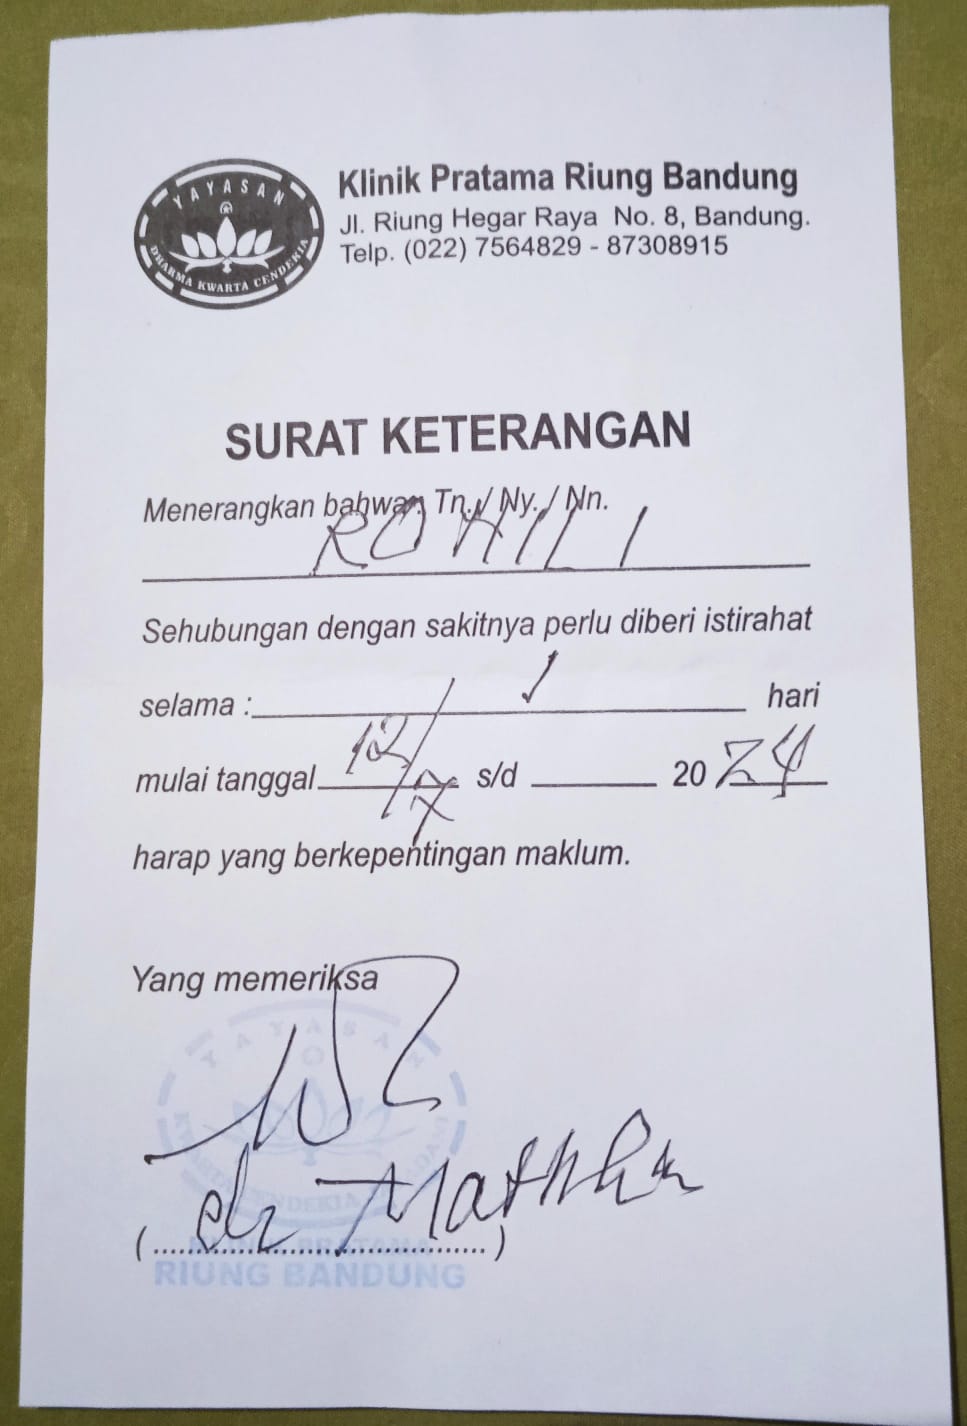 YAYASAN
DHARMA KWARTA CENDEKIA
Klinik Pratama Riung Bandung
Jl. Riung Hegar Raya No. 8, Bandung.
Telp. (022) 7564829 - 87308915
SURAT KETERANGAN
Menerangkan bahwa Tn./ Ny./ Nn.
ROHILI
Sehubungan dengan sakitnya perlu diberi istirahat
selama : 1 hari
mulai tanggal 12/7 s/d 2024
harap yang berkepentingan maklum.
Yang memeriksa
YAYASAN
dr
RIUNG BANDUNG